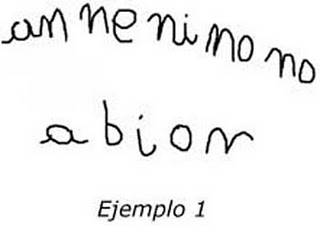 an ne ni no no
abion
Ejemplo 1